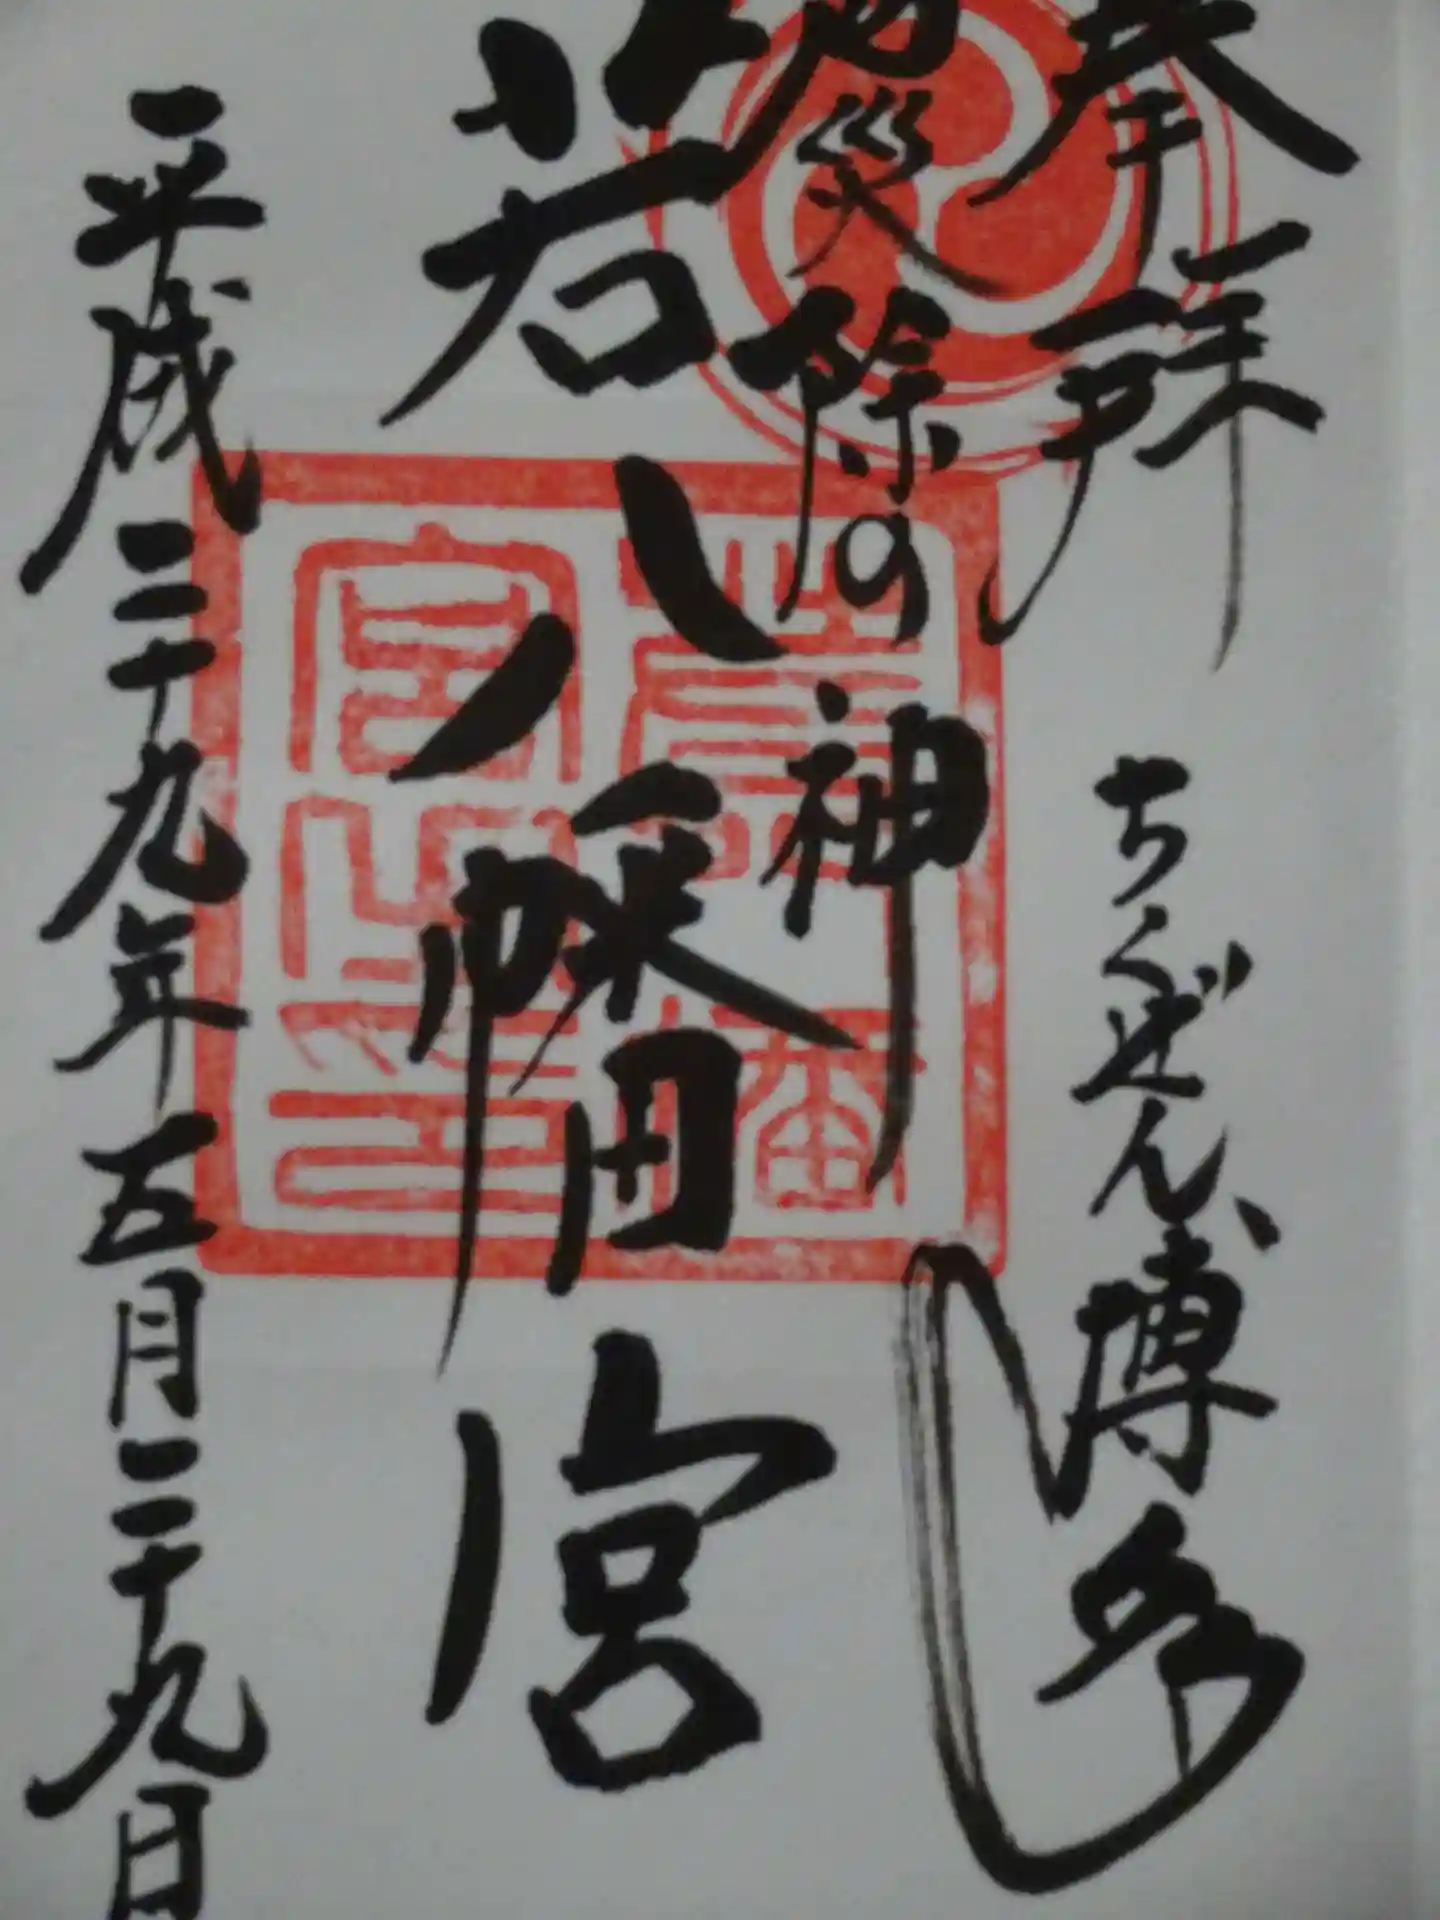 奉拝
ちくぜん、博多
災除の神
若八幡宮
平成二十九年五月二十九日